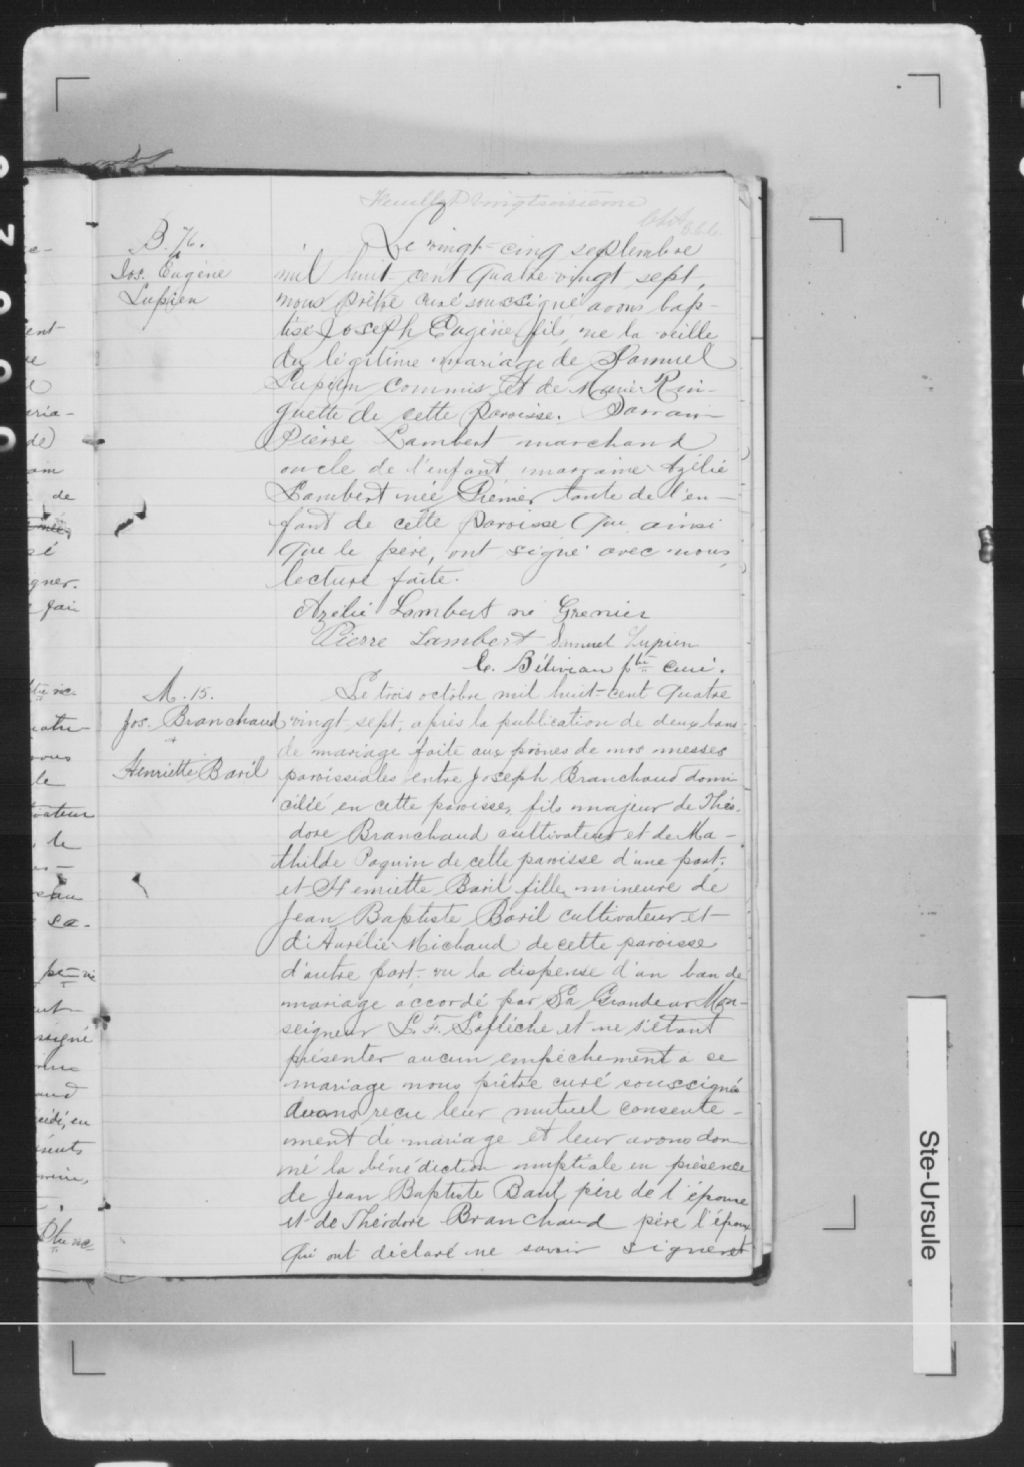 Feuillet vingtroisième
B. 76.
Jos. Eugène
Lupien
Le vingt-cinq septembre
mil huit cent quatre vingt sept,
nous prêtre curé soussigné avons bap-
tisé Joseph Eugène fils né la veille
du légitime mariage de Samuel
Lupien commis et de Marie Rin-
guette de cette paroisse. Parrain
Pierre Lambert marchand
oncle de l'enfant marraine Azélie
Lambert née Grenier tante de l'en-
fant de cette paroisse qui ainsi
que le père, ont signé avec nous,
lecture faite.
Azélie Lambert né Grenier
Pierre Lambert Samuel Lupien
Béliveau ptre curé.
M. 15.
Jos. Branchaud
+
Henriette Baril
Le trois octobre mil huit-cent quatre
vingt-sept, après la publication de deux bans
de mariage faite aux prônes de nos messes
paroissiales entre Joseph Branchaud domi
cilié en cette paroisse, fils majeur de Théo-
dore Branchaud cultivateur et de Ma-
thilde Paquin de cette paroisse d'une part;
et Henriette Baril fille mineure de
Jean Baptiste Baril cultivateur et
d'Aurélie Michaud de cette paroisse
d'autre part, vu la dispense d'un ban de
mariage accordé par Sa Grandeur Mon-
seigneur L. F. Laflèche et ne s'étant
présenter aucun empêchement à se
mariage nous prêtre curé soussigné
avons reçu leur mutuel consente-
ment de mariage et leur avons don-
né la bénédiction nuptiale en présence
de Jean Baptiste Baril père de l'épouse
et de Théodore Branchaud père l'époux
qui ont déclaré ne savoir signer et
Ste-Ursule